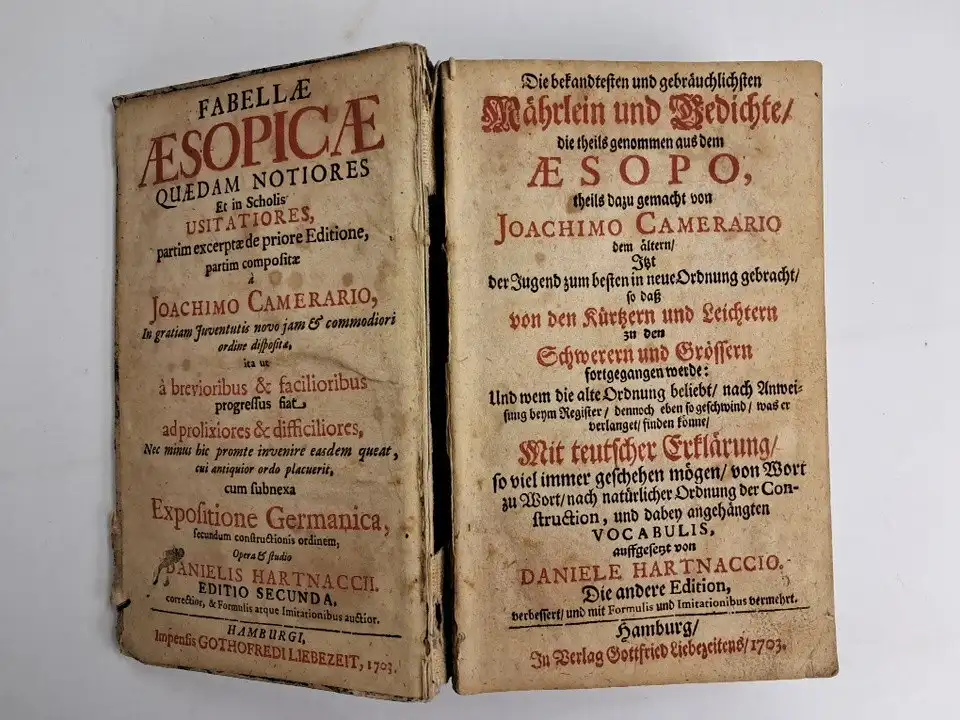 FABELLÆ
ÆSOPICÆ
QUÆDAM NOTIORES
Et in Scholis
USITATIORES,
partim excerptæ de priore Editione,
partim compositæ
à
JOACHIMO CAMERARIO,
In gratiam Juventutis novo jam & commodiori
ordine dispositæ,
ita ut
à brevioribus & facilioribus
progressus fiat
ad prolixiores & difficiliores,
Nec minus hic promte invenire easdem queat,
cui antiquior ordo placuerit,
cum subnexa
Expositione Germanica,
secundum constructionis ordinem,
Opera & studio
DANIELIS HARTNACCII.
EDITIO SECUNDA,
correctior, & Formulis atque Imitationibus auctior.
HAMBURGI,
Impensis GOTHOFREDI LIEBEZEIT, 1703.
Die bekandtesten und gebräuchlichsten
Mährlein und Gedichte/
die theils genommen aus dem
ÆSOPO,
theils dazu gemacht von
JOACHIMO CAMERARIO
dem ältern/
Itzt
der Jugend zum besten in neue Ordnung gebracht/
so daß
von den Kürtzern und Leichtern
zu den
Schwerern und Grössern
fortgegangen werde:
Und wem die alte Ordnung beliebt/ nach Anwei-
sung beym Register/ dennoch eben so geschwind/ was er
verlanget/ finden könne/
Mit teutscher Erklärung/
so viel immer geschehen mögen/ von Wort
zu Wort/ nach natürlicher Ordnung der Con-
struction, und dabey angehängten
VOCABULIS,
auffgesetzt von
DANIELE HARTNACCIO.
Die andere Edition,
verbessert/ und mit Formulis und Imitationibus vermehrt.
Hamburg/
In Verlag Gottfried Liebezeitens/ 1703.